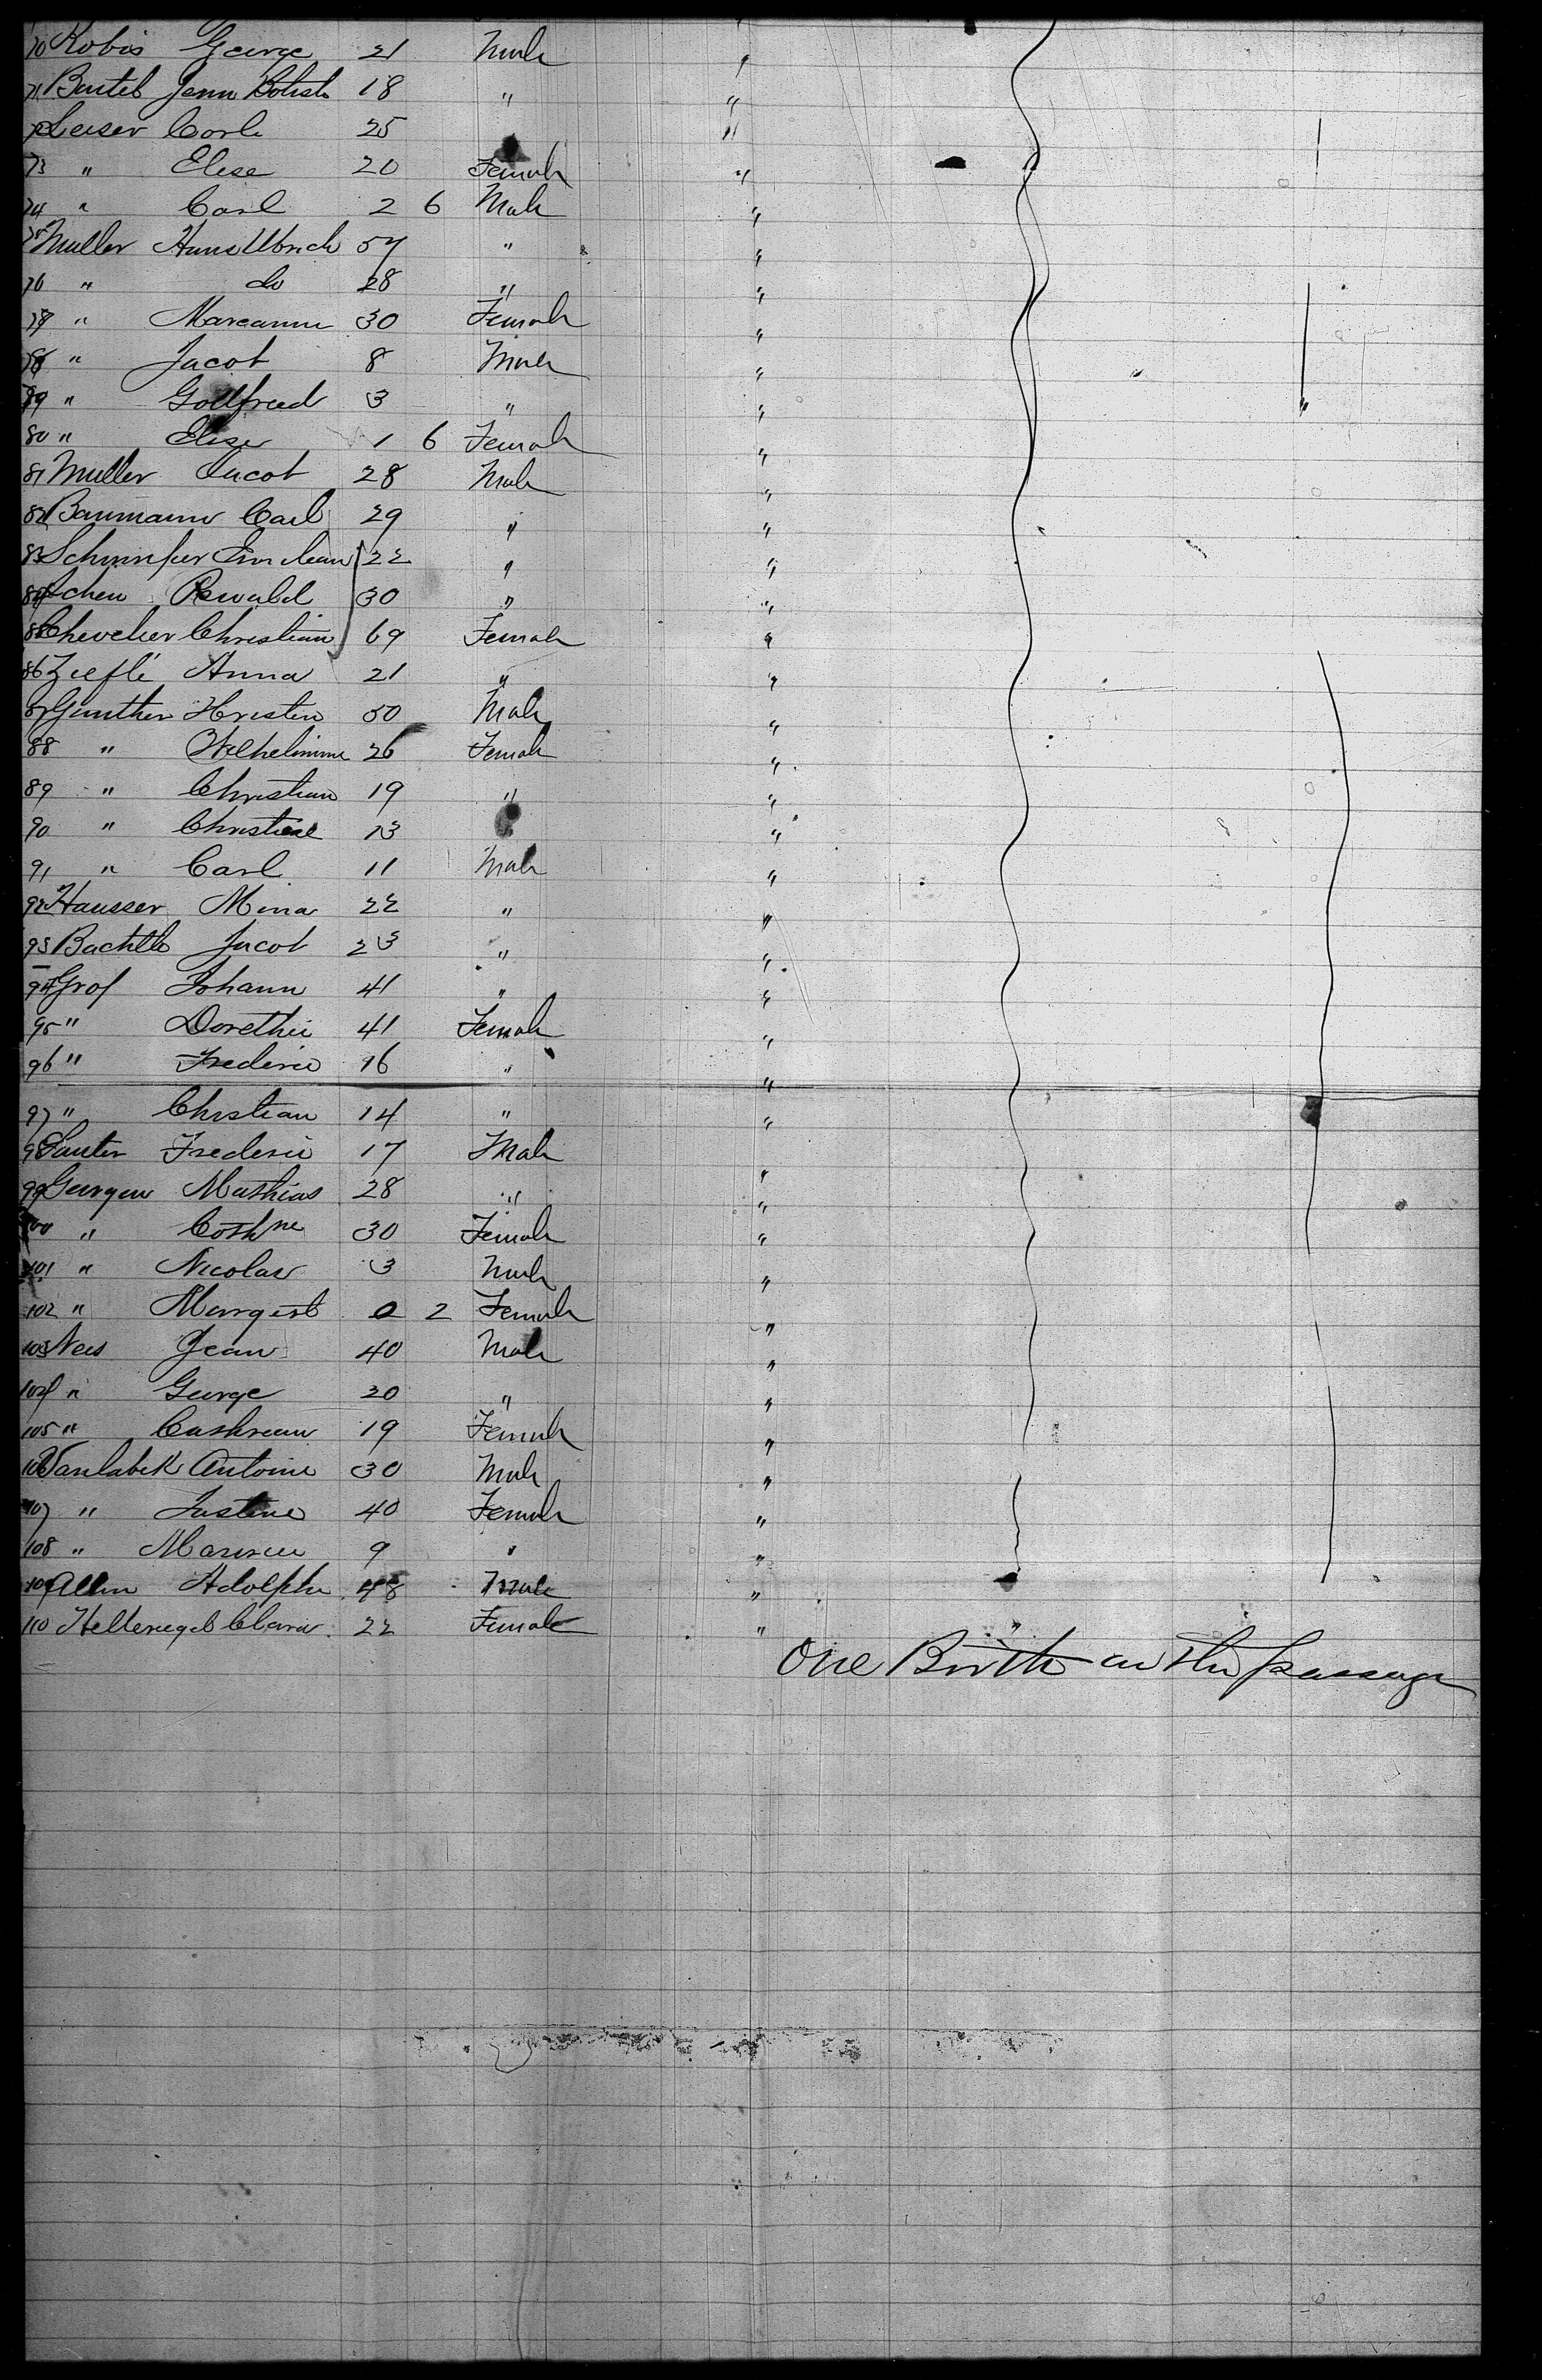 70 Kobis George 21 Male "
71 Bartel Jean Batist 18 " "
72 Leiser Carl 25 "
73 " Elise 20 Female "
74 " Carl 2 6 Male "
75 Muller Hans Ulrich 57 " "
76 " do 28 " "
77 " Mareanne 30 Female "
78 " Jacob 8 Male "
79 " Gottfried 3 " "
80 " Elise 1 6 Female "
81 Muller Jacob 28 Male "
82 Baumann Carl 29 " "
83 22 " "
84 30 " "
85 Chevelier Christian 69 Female "
86 Anna 21 " "
87 Gunther 50 Male "
88 " Wilhelimine 26 Female "
89 " Christian 19 " "
90 " 13 "
91 " Carl 11 Male "
92 Hausser Mina 22 " "
93 Jacob 23 " "
94 Graf Johann 41 " "
95 " Dorethie 41 Female "
96 " Frederic 16 " "
97 " Christian 14 " "
98 Sauter Frederic 17 Male "
99 Gurgen Mathias 28 " "
100 " Cathne 30 Female "
101 " Nicolas 3 Male "
102 " Margret 0 2 Female "
103 Neis Jean 40 Male "
104 " George 20 " "
105 " 19 Female "
106 Antoine 30 Male "
107 " Justine 40 Female "
108 " 9 " "
109 Adolphe 48 Male "
110 Clara 22 Female "
One Birth on the passage